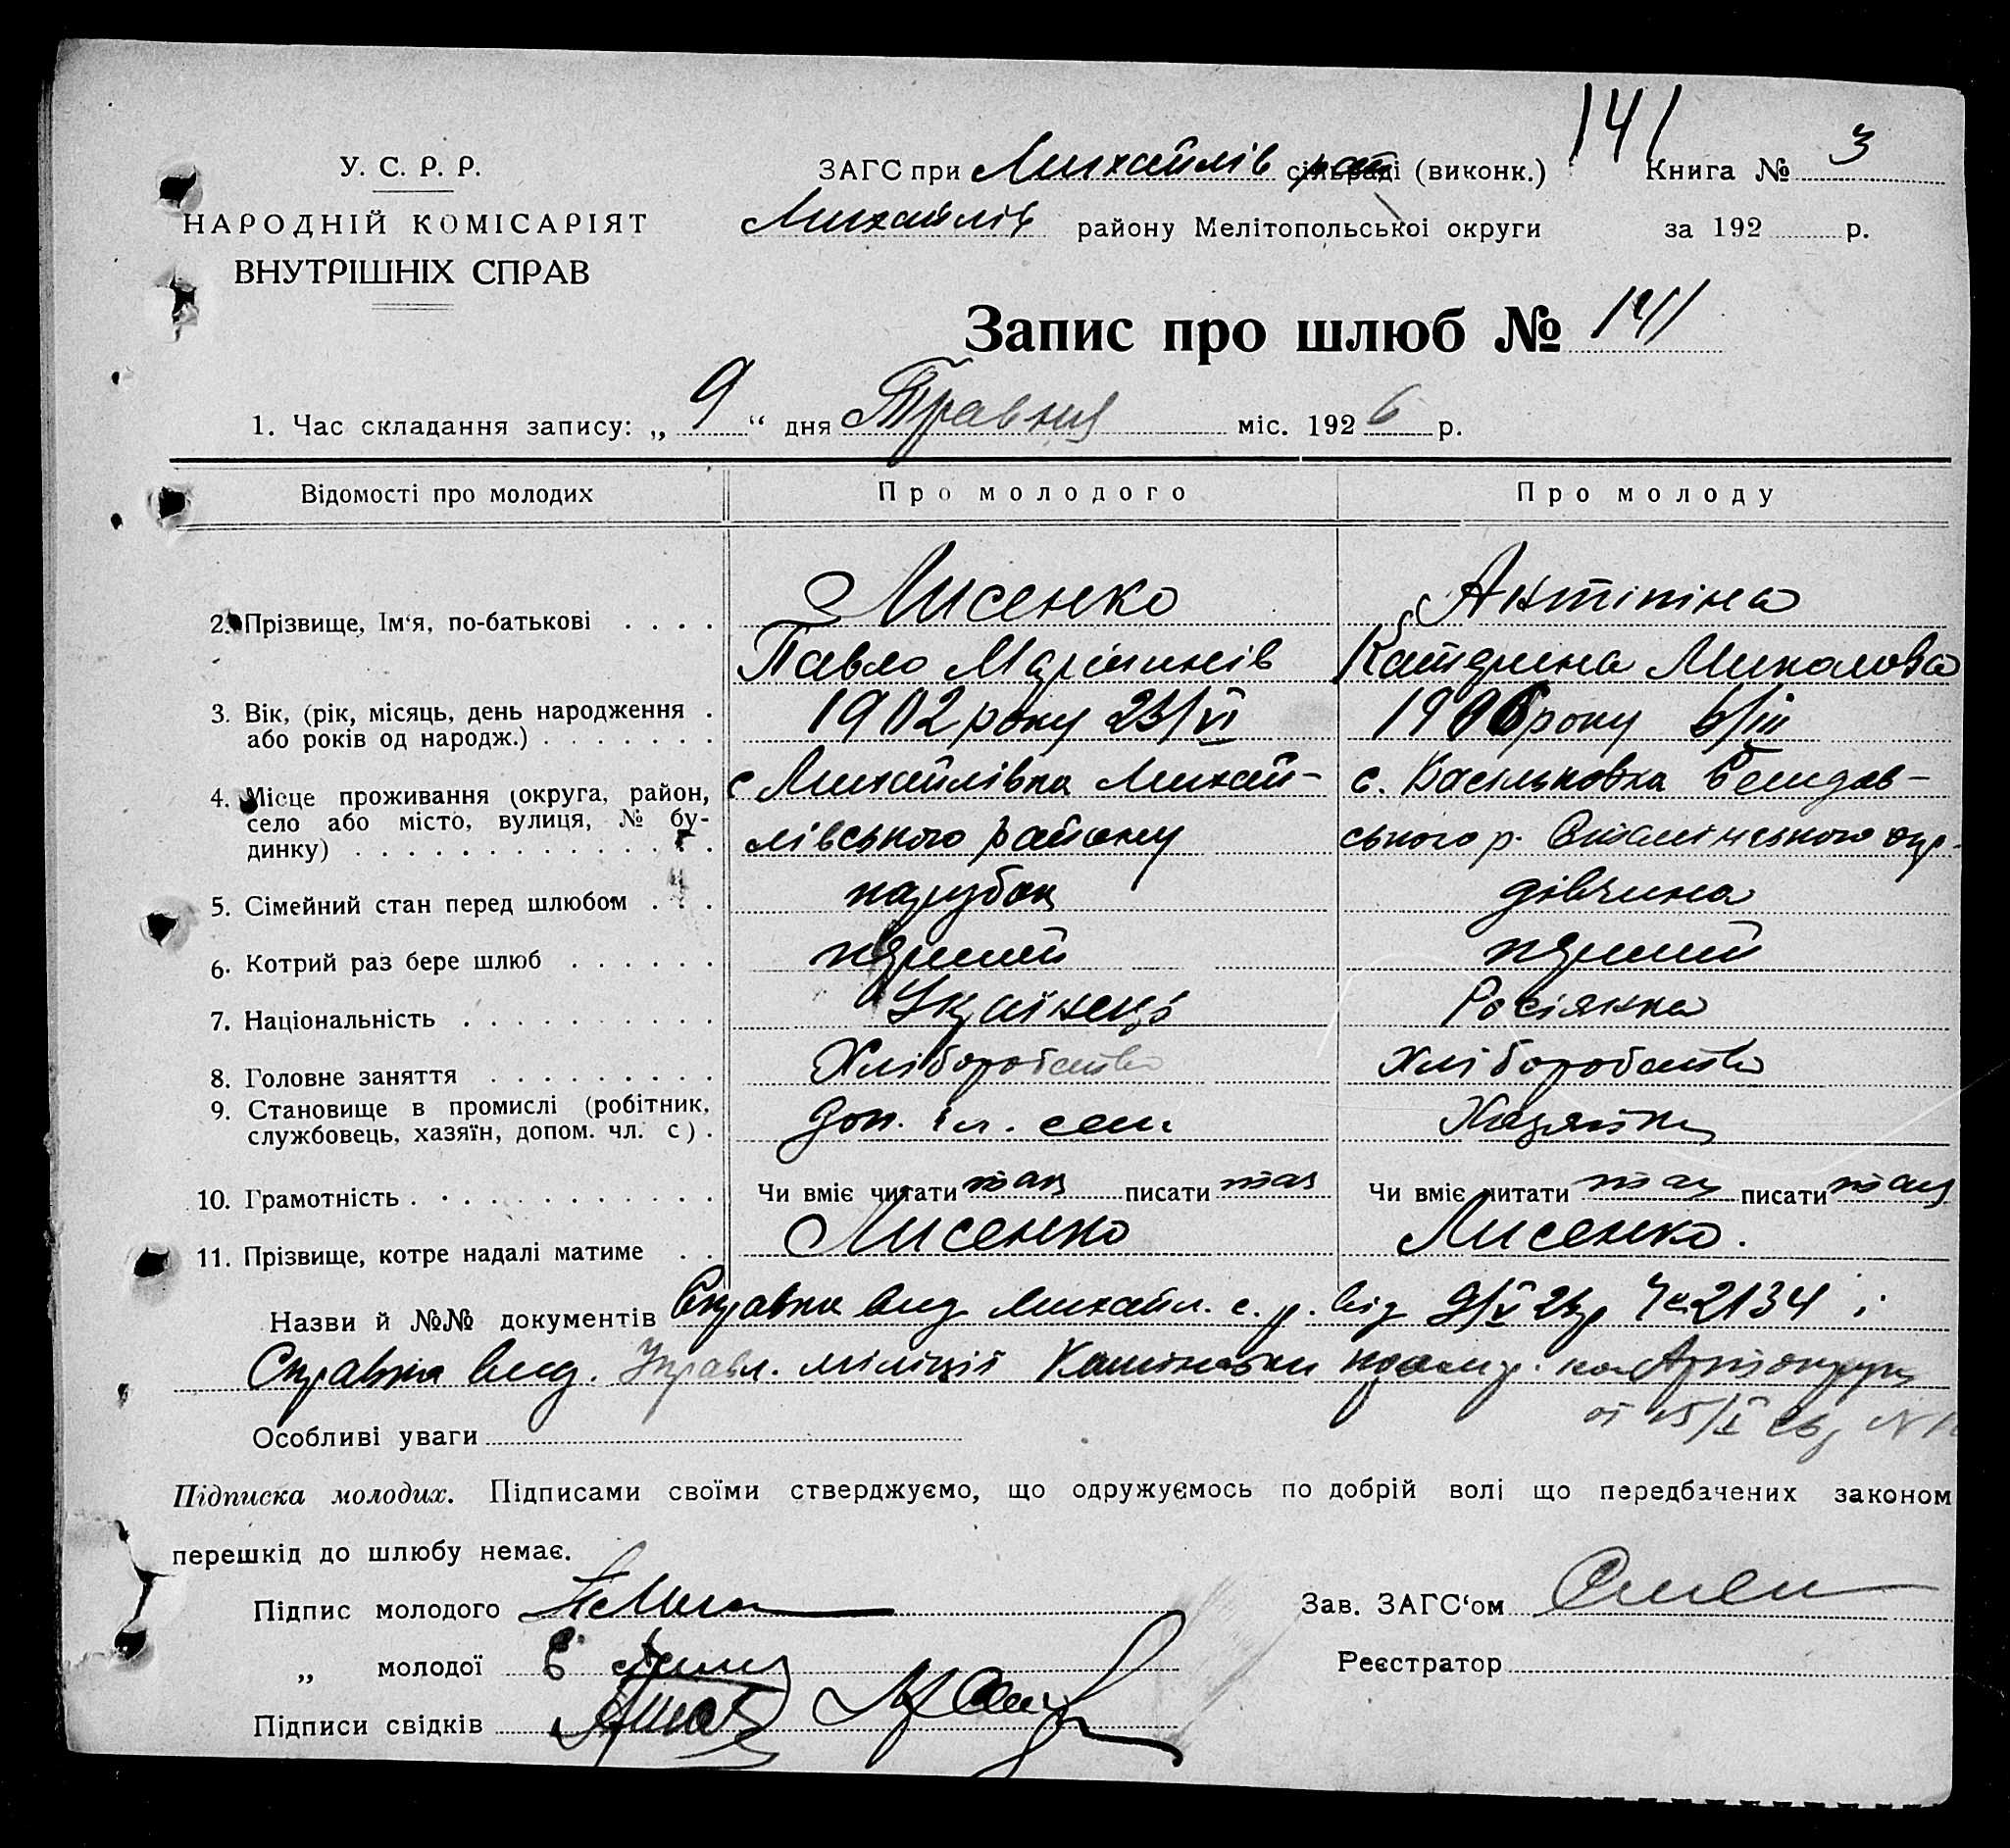 141
У. С. Р. Р.
НАРОДНІЙ КОМІСАРІЯТ
ВНУТРІШНІХ СПРАВ
ЗАГС при Михайлів сільраді (виконк.) Книга № 3
Михайлів району Мелітопольської округи за 192 р.
Запис про шлюб № 141
1. Час складання запису: „ 9 “ дня Травня міс. 1926 р.
Відомості про молодих Про молодого Про молоду
2. Прізвище, Ім'я, по-батькові Лисенко Антипіна
Павло Катерина Миколовна
3. Вік, (рік, місяць, день народження 1902 року 23/VI 1906 року 6/III
або років од народж.)
4. Місце проживання (округа, район, с Михайлівка Михай-
село або місто, вулиця, № бу- лівського району
динку) ського р. Сталінського окр.
5. Сімейний стан перед шлюбом парубок дівчина
6. Котрий раз бере шлюб перший перший
7. Національність Українець Росіянка
8. Головне заняття Хліборобство Хліборобство
9. Становище в промислі (робітник, доп. чл. сем. Хазяйка
службовець, хазяїн, допом. чл. с)
10. Грамотність Чи вміє читати так писати так Чи вміє читати так писати так
11. Прізвище, котре надалі матиме Лисенко Лисенко.
Назви й №№ документів Справка вид Михайл. с. р. від 9/V 26р № 2134 і
Справка вид. Управл. міліції
Особливі уваги
Підписка молодих. Підписами своїми стверджуємо, що одружуємось по добрій волі що передбачених законом
перешкід до шлюбу немає.
Підпис молодого Зав. ЗАГС‘ом
„ молодої Реєстратор
Підписи свідків